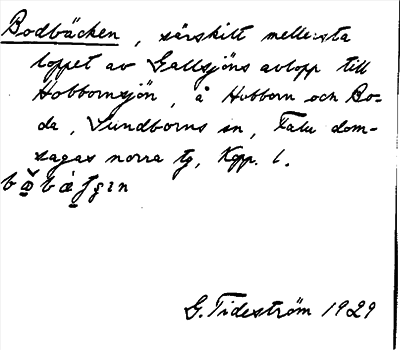 Bodbäcken, särskilt mellersta
loppet av Gallsjöns avlopp till
Hobbornsjön, å Hobborn och Bo-
da, Sundborns sn, Falu dom-
sagas norra tg, Kpp. l.
G. Tideström 1929